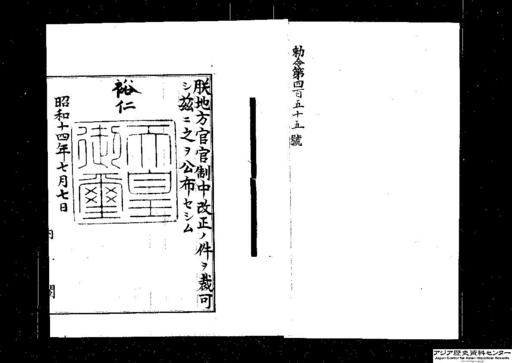 勅令第四百五十五號
朕地方官官制中改正ノ件ヲ裁可
シ茲ニ之ヲ公布セシム
裕仁
天皇御璽
昭和十四年七月七日
内 閣
アジア歴史資料センター
Japan Center for Asian Historical Records